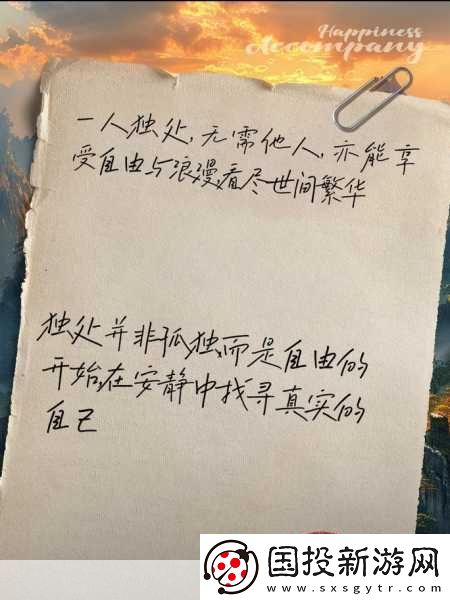 Happiness
Accompany
一人独处,无需他人,亦能享
受自由与浪漫,看尽世间繁华
独处并非孤独,而是自由的
开始,在安静中找寻真实的
自己
国投新游网
www.sxsgytr.com